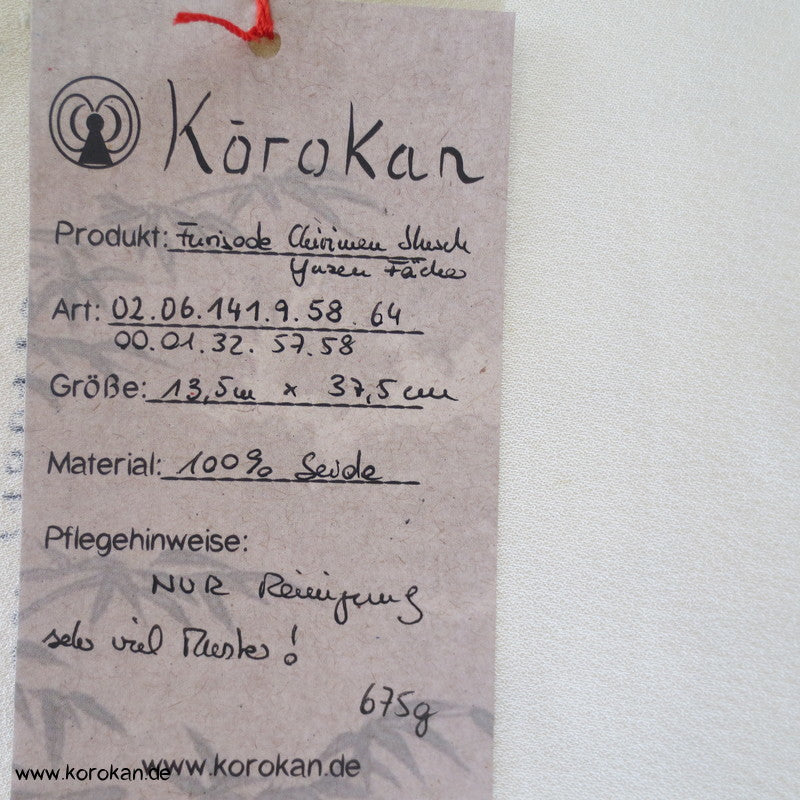 Kōrokan
Produkt: Furisode Chirimen
Yuzen Fächer
Art: 02.06.141.9.58.64
00.01.32.57.58
Größe: 13,5m x 37,5cm
Material: 100% Seide
Pflegehinweise:
NUR Reinigung
sehr viel Muster!
675g
www.korokan.de
www.korokan.de